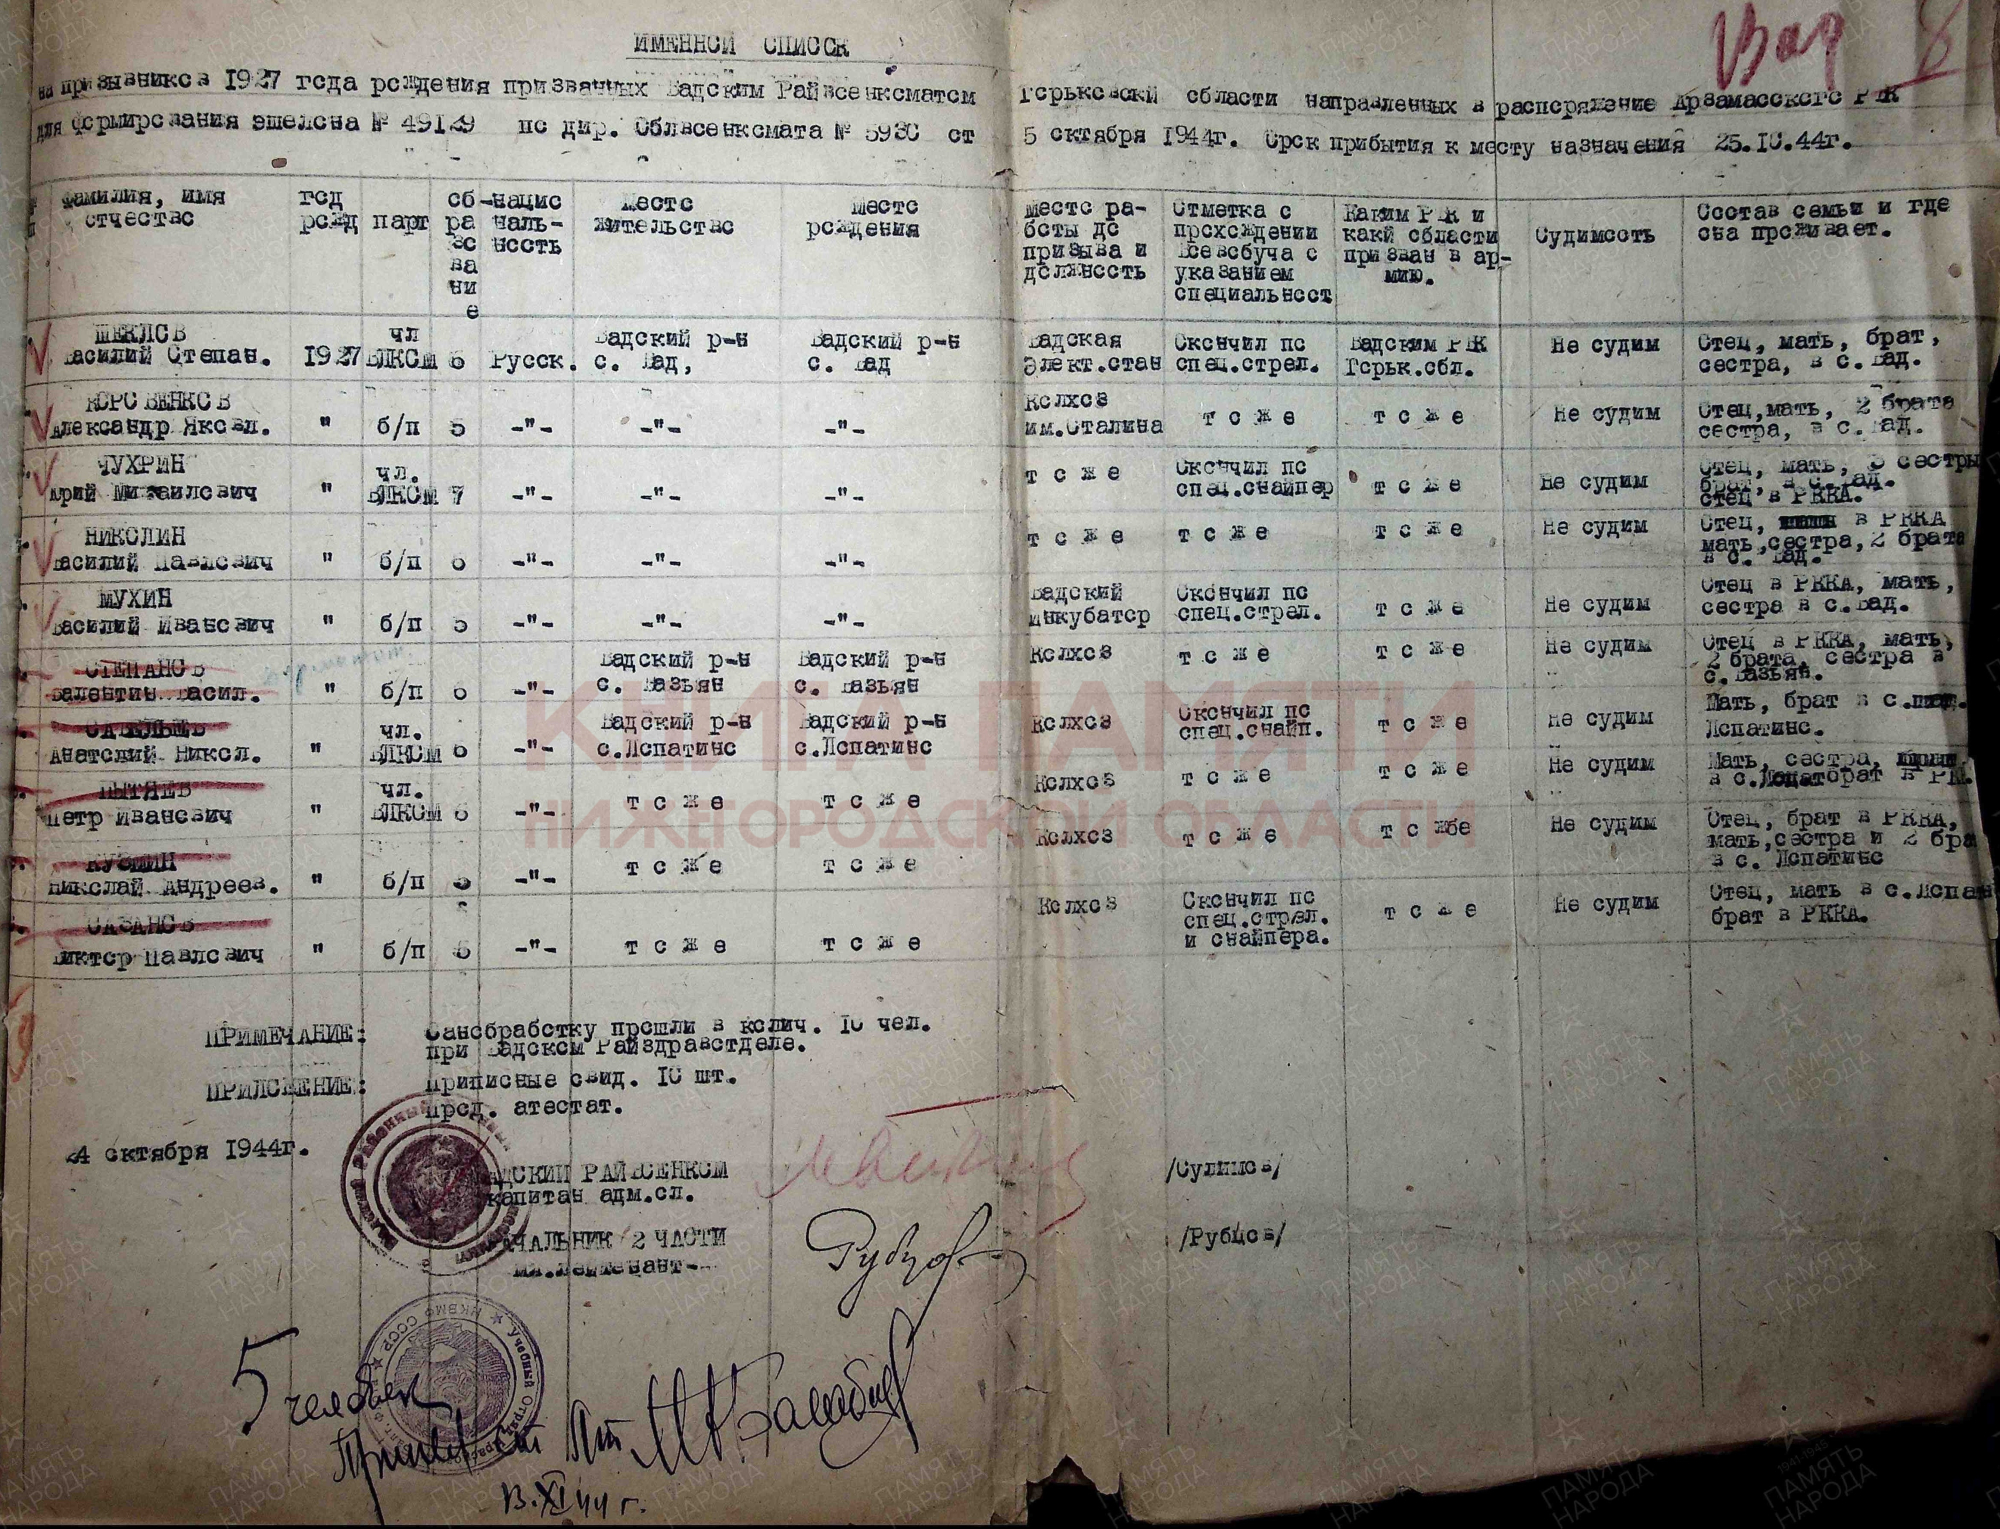 Вад 8
ИМЕННОЙ СПИСОК
на призывников 1927 года рождения призванных Вадским Райвоенкоматом Горьковской области направленных в распоряжение Арзамасского РВК
для формирования эшелона № 49129 по дир. Облвоенкомата № 5930 от 5 октября 1944г. Срок прибытия к месту назначения 25.10.44г.
Фамилия, имя отчество | год рожд | парт | образование | национальность | Место жительство | Место рождения | Место работы до призыва и должность | Отметка о прохождении Всевобуча с указанием специальност | Каким РВК и какй области призван в армию. | Судимость | Состав семьи и где она проживает.
ШЕКЛОВ Василий Степан. | 1927 | чл ВЛКСМ | 6 | Русск. | Вадский р-н с. Вад, | Вадский р-н с. Вад | Вадская Элект.стан | Окончил по спец.стрел. | Вадским РВК Горьк.обл. | Не судим | Отец, мать, брат, сестра, в с.Вад.
КОРОВЕНКОВ Александр Яковл. | " | б/п | 5 | -"- | -"- | -"- | Колхоз им.Сталина | т о ж е | т о ж е | Не судим | Отец,мать, 2 брата сестра, в с.Вад.
ЧУХРИН Юрий Михаилович | " | чл. ВЛКСМ | 7 | -"- | -"- | -"- | т о ж е | Окончил по спец.снайпер | т о ж е | Не судим | Отец, мать, 3 сестры брат, в с.Вад. отец в РККА.
НИКОЛИН Василий Павлович | " | б/п | 6 | -"- | -"- | -"- | т о ж е | т о ж е | т о ж е | Не судим | Отец, в РККА мать,сестра,2 брата в с. Вад.
МУХИН Василий Иванович | " | б/п | 5 | -"- | -"- | -"- | Вадский Инкубатор | Окончил по спец.стрел. | т о ж е | Не судим | Отец в РККА, мать, сестра в с.Вад.
СТЕПАНОВ Валентин Васил. | " | б/п | 6 | -"- | Вадский р-н с. Вазьян | Вадский р-н с. Вазьян | Колхоз | т о ж е | т о ж е | Не судим | Отец в РККА, мать, 2 брата, сестра в с.Вазьян.
Анатолий Никол. | " | чл. ВЛКСМ | 6 | -"- | Вадский р-н с.Лопатино | Вадский р-н с.Лопатино | Колхоз | Окончил по спец.снайп. | т о ж е | Не судим | Мать, брат в с. Лопатино.
ПЫТЯЕВ Петр Иванович | " | чл. ВЛКСМ | 6 | -"- | т о ж е | т о ж е | Колхоз | т о ж е | т о ж е | Не судим | Мать, сестра, в с.Лопат брат в РК.
КУЗМИН Николай Андреев. | " | б/п | 5 | -"- | т о ж е | т о ж е | Колхоз | т о ж е | т о жбе | Не судим | Отец, брат в РККА, мать,сестра и 2 бра в с. Лопатино
САЗАНОВ Виктор Павлович | " | б/п | 6 | -"- | т о ж е | т о ж е | Колхоз | Окончил по спец.стрел. и снайпера. | т о ж е | Не судим | Отец, мать в с.Лопат брат в РККА.
КНИГА ПАМЯТИ
НИЖЕГОРОДСКОЙ ОБЛАСТИ
ПРИМЕЧАНИЕ: Санобработку прошли в колич. 10 чел.
при Вадском Райздравотделе.
ПРИЛОЖЕНИЕ: Приписные свид. 10 шт.
прод. атестат.
24 октября 1944г.
ВАДСКИЙ РАЙВОЕНКОМ
капитан адм.сл. /Сулимов/
НАЧАЛЬНИК 2 ЧАСТИ
мл.лейтенант- Рубцов /Рубцов/
Учебный Отряд НКВМФ СССР
5 человек
Принял
13.XI 44 г.
ПАМЯТЬ НАРОДА